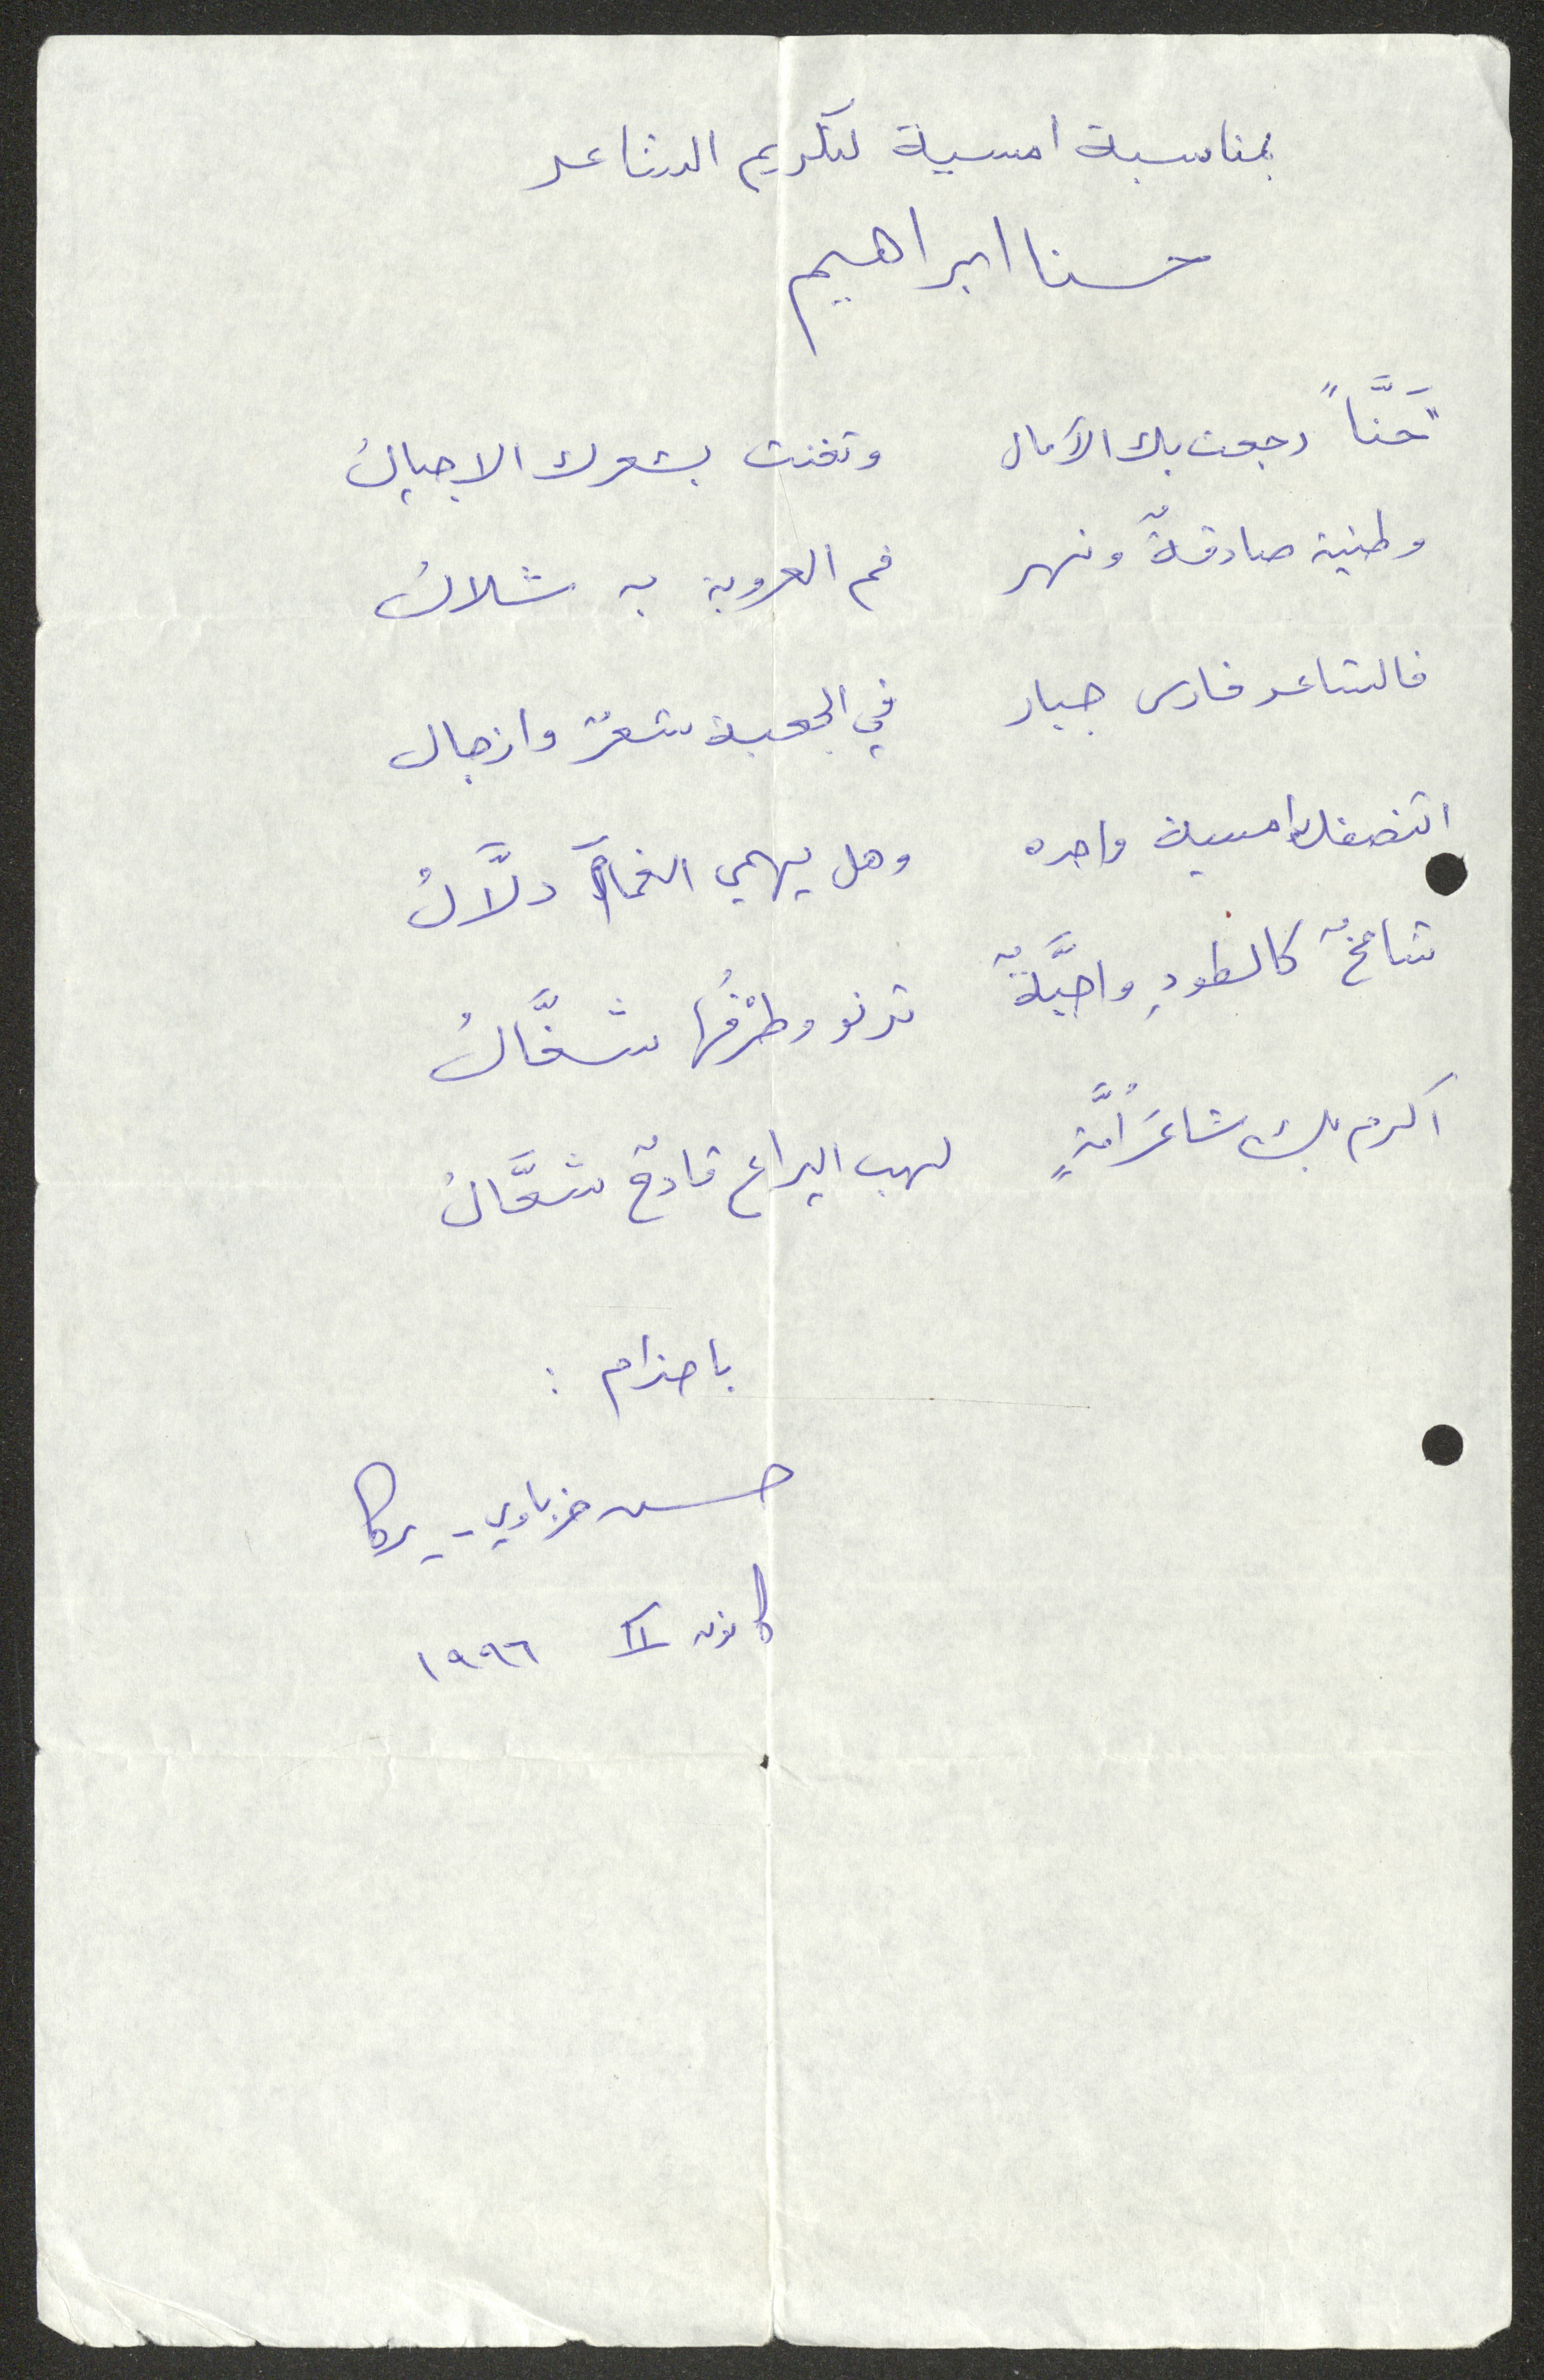 بمناسبة امسية لتكريم الشاعر
حنا ابراهيم
"حَنَّا" رجعت بك الآمال وتغنت بشعرك الاجيالُ
وطنية صادقةٌ ونهر فم العروبة به شلالُ
فالشاعر فارس جبار في الجعبة شعرٌ وازجال
اتنصفك امسية واحده وهل يهمي الغمامَ دلَّالُ
شامخٌ كالطودِ واحبَّةٌ ترنو وطرْفُها شغَّالُ
اكرم بك شاعرَ اُمَّةٍ لهب اليراع قادحٌ شعَّالُ
باحترام :
حسن خرباوي - يركا
كانون II ١٩٩٦